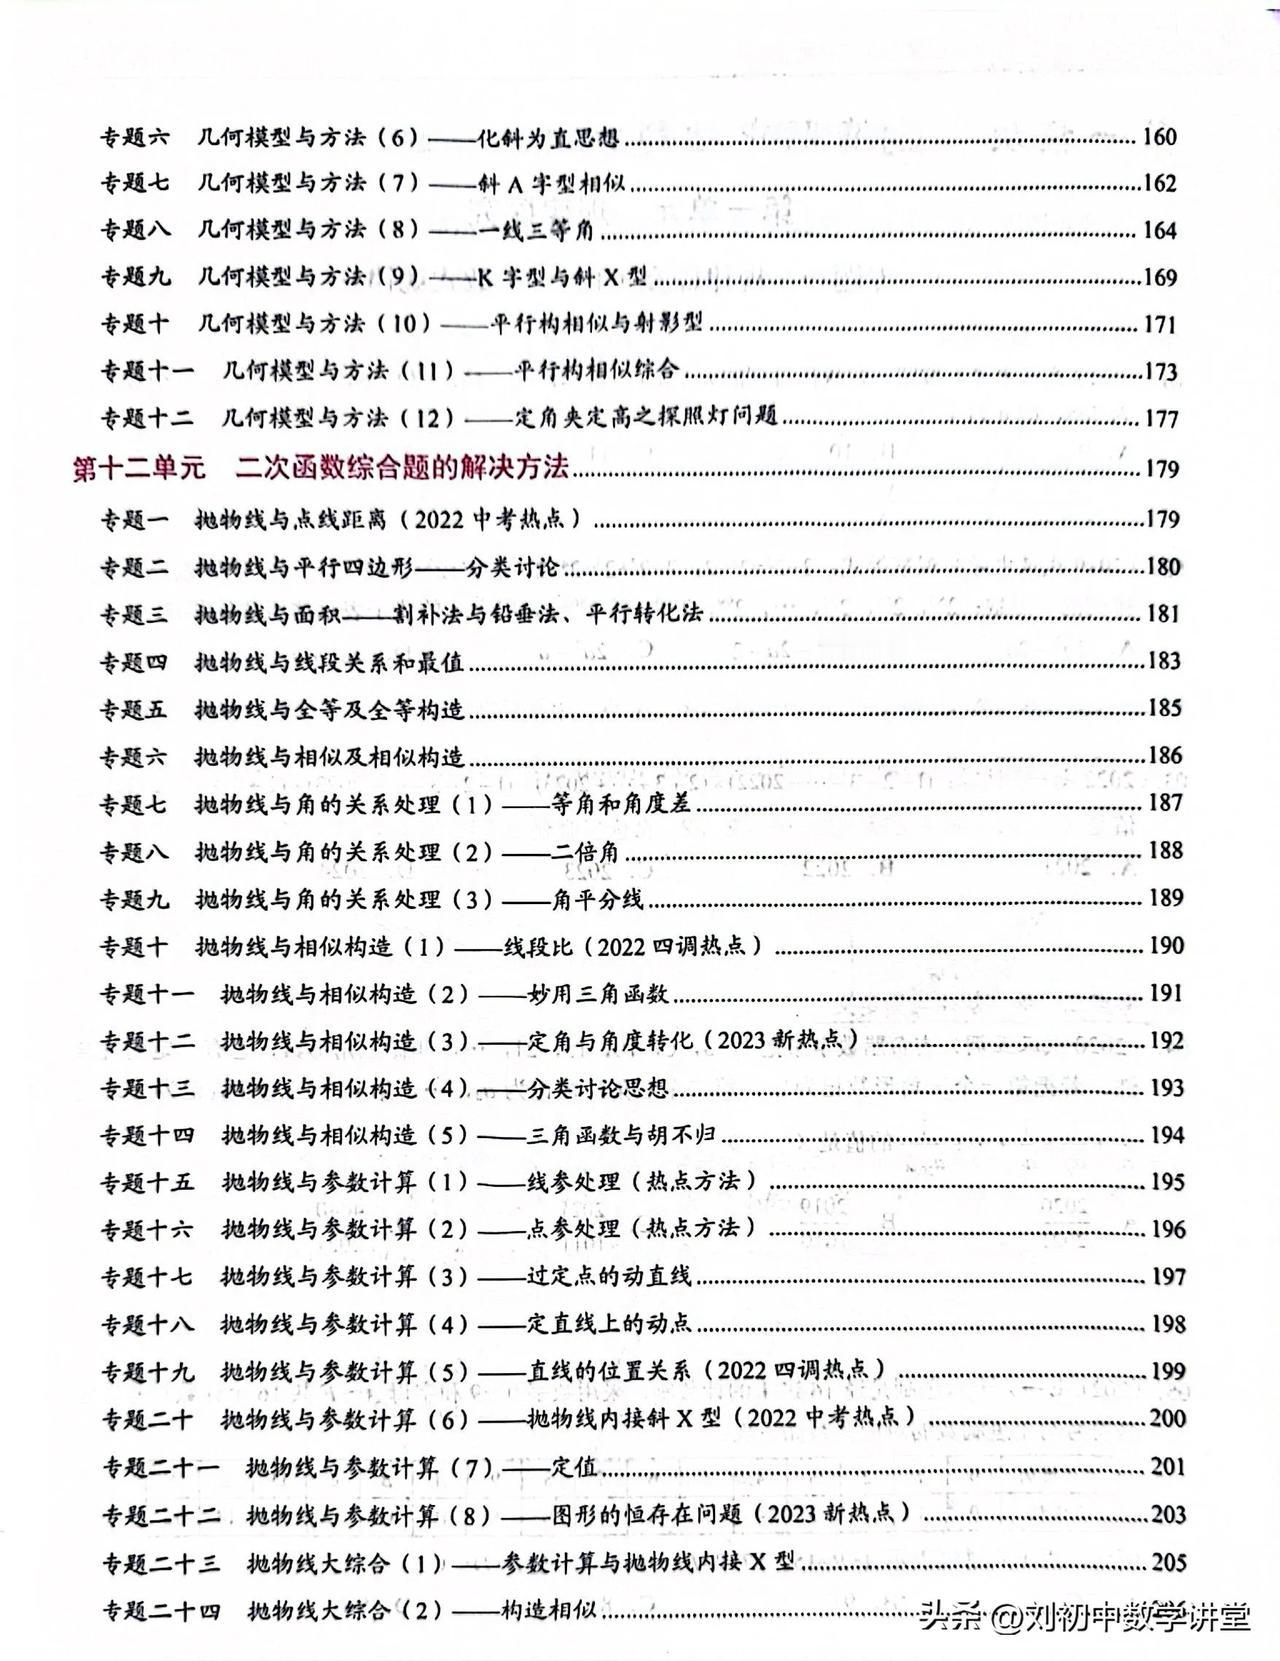 专题六 几何模型与方法(6)——化斜为直思想 160
专题七 几何模型与方法(7)——斜A字型相似 162
专题八 几何模型与方法(8)——一线三等角 164
专题九 几何模型与方法(9)——K字型与斜X型 169
专题十 几何模型与方法(10)——平行构相似与射影型 171
专题十一 几何模型与方法(11)——平行构相似综合 173
专题十二 几何模型与方法(12)——定角夹定高之探照灯问题 177
第十二单元 二次函数综合题的解决方法 179
专题一 抛物线与点线距离(2022中考热点) 179
专题二 抛物线与平行四边形——分类讨论 180
专题三 抛物线与面积——割补法与铅垂法、平行转化法 181
专题四 抛物线与线段关系和最值 183
专题五 抛物线与全等及全等构造 185
专题六 抛物线与相似及相似构造 186
专题七 抛物线与角的关系处理(1)——等角和角度差 187
专题八 抛物线与角的关系处理(2)——二倍角 188
专题九 抛物线与角的关系处理(3)——角平分线 189
专题十 抛物线与相似构造(1)——线段比(2022四调热点) 190
专题十一 抛物线与相似构造(2)——妙用三角函数 191
专题十二 抛物线与相似构造(3)——定角与角度转化(2023新热点) 192
专题十三 抛物线与相似构造(4)——分类讨论思想 193
专题十四 抛物线与相似构造(5)——三角函数与胡不归 194
专题十五 抛物线与参数计算(1)——线参处理(热点方法) 195
专题十六 抛物线与参数计算(2)——点参处理(热点方法) 196
专题十七 抛物线与参数计算(3)——过定点的动直线 197
专题十八 抛物线与参数计算(4)——定直线上的动点 198
专题十九 抛物线与参数计算(5)——直线的位置关系(2022四调热点) 199
专题二十 抛物线与参数计算(6)——抛物线内接斜X型(2022中考热点) 200
专题二十一 抛物线与参数计算(7)——定值 201
专题二十二 抛物线与参数计算(8)——图形的恒存在问题(2023新热点) 203
专题二十三 抛物线大综合(1)——参数计算与抛物线内接X型 205
专题二十四 抛物线大综合(2)——构造相似
头条 @刘初中数学讲堂